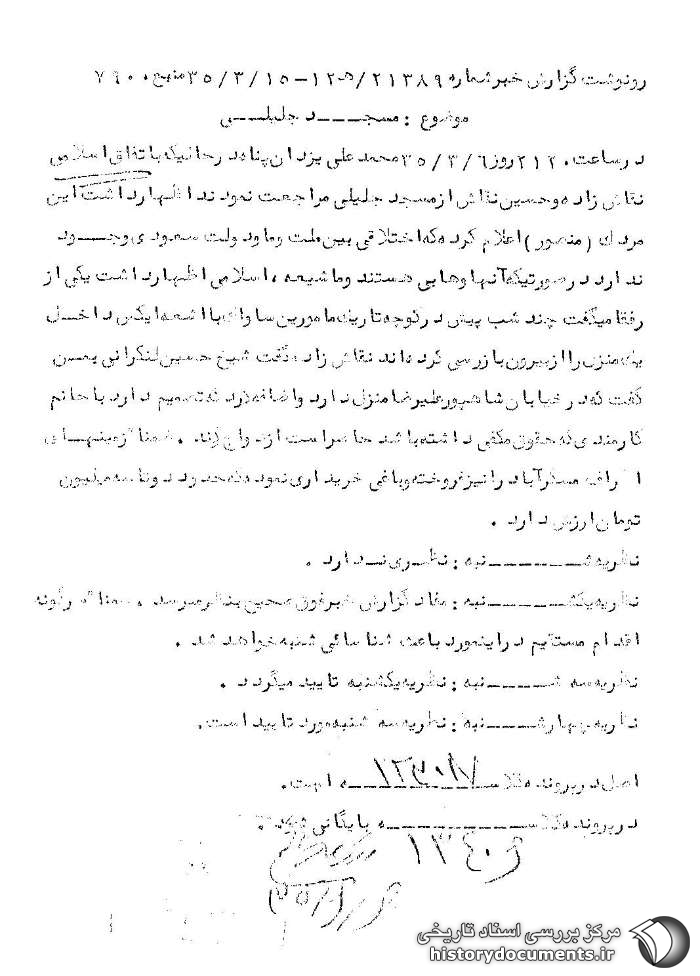 رونوشت گزارش خبر شماره ۲۱۳۸۹/ه‍ ۱۲-۳۵/۳/۱۵ منبع ۷۹۰۰
موضوع : مسجد جلیلی
در ساعت ۲۱۲۰ روز ۳۵/۳/۶ محمد علی یزدان پناه در حالیکه باتفاق اسلامی
نقاش زاده و حسین نقاش از مسجد جلیلی مراجعت نمودند اظهار داشت این
مردك (منصور) اعلام کرده که اختلافی بین ملت و ما و دولت سعودی وجود
ندارد در صورتیکه آنها وهابی هستند و ما شیعه ، اسلامی اظهار داشت یکی از
رفقا میگفت چند شب پیش در کوچه تاریك مامورین ساواك با اشعه ایکس داخل
یك منزل را از بیرون بازرسی کرده اند نقاش زاده گفت شیخ حسین لنکرانی بمن
گفت که در خیابان شاهپور علیرضا منزل دارد و اضافه کرد که تصمیم دارد با خانم
کارمندی که حقوق مکفی داشته باشد حاضر است ازدواج کند . ضمنا" زمینهای
اطراف مسگرآباد را نیز فروخته و باغی خریداری نموده که حدود دو تا سه میلیون
تومان ارزش دارد .
نظریه شنبه : نظری ندارد .
نظریه یکشنبه : مفاد گزارش خبر فوق صحیح بنظر میرسد . ضمنا" هر گونه
اقدام مستقیم در اینمورد باعث شناسائی شنبه خواهد شد .
نظریه سه شنبه : نظریه یکشنبه تایید میگردد .
نظریه چهارشنبه : نظریه سه شنبه مورد تایید است .
اصل در پرونده کلاسه ۱۲۳۰۱۷ است.
در پرونده کلاسه ۱۳۴۰ بایگانی شود .
مرکز بررسی اسناد تاریخی
historydocuments.ir